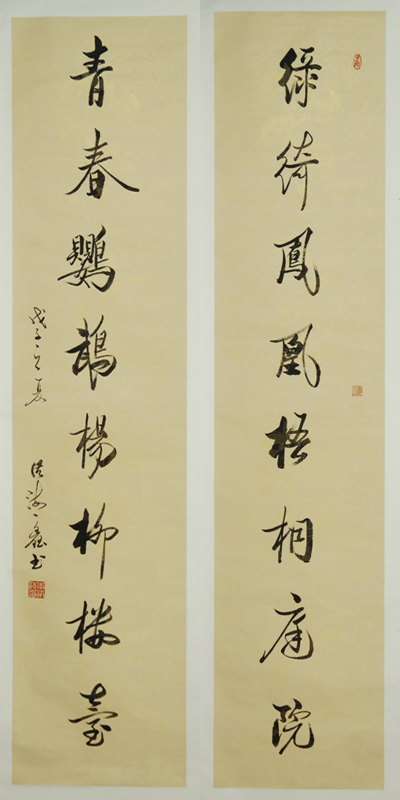 綠綺鳳凰梧桐庭院
青春鸚鵡楊柳樓臺
戊子之夏